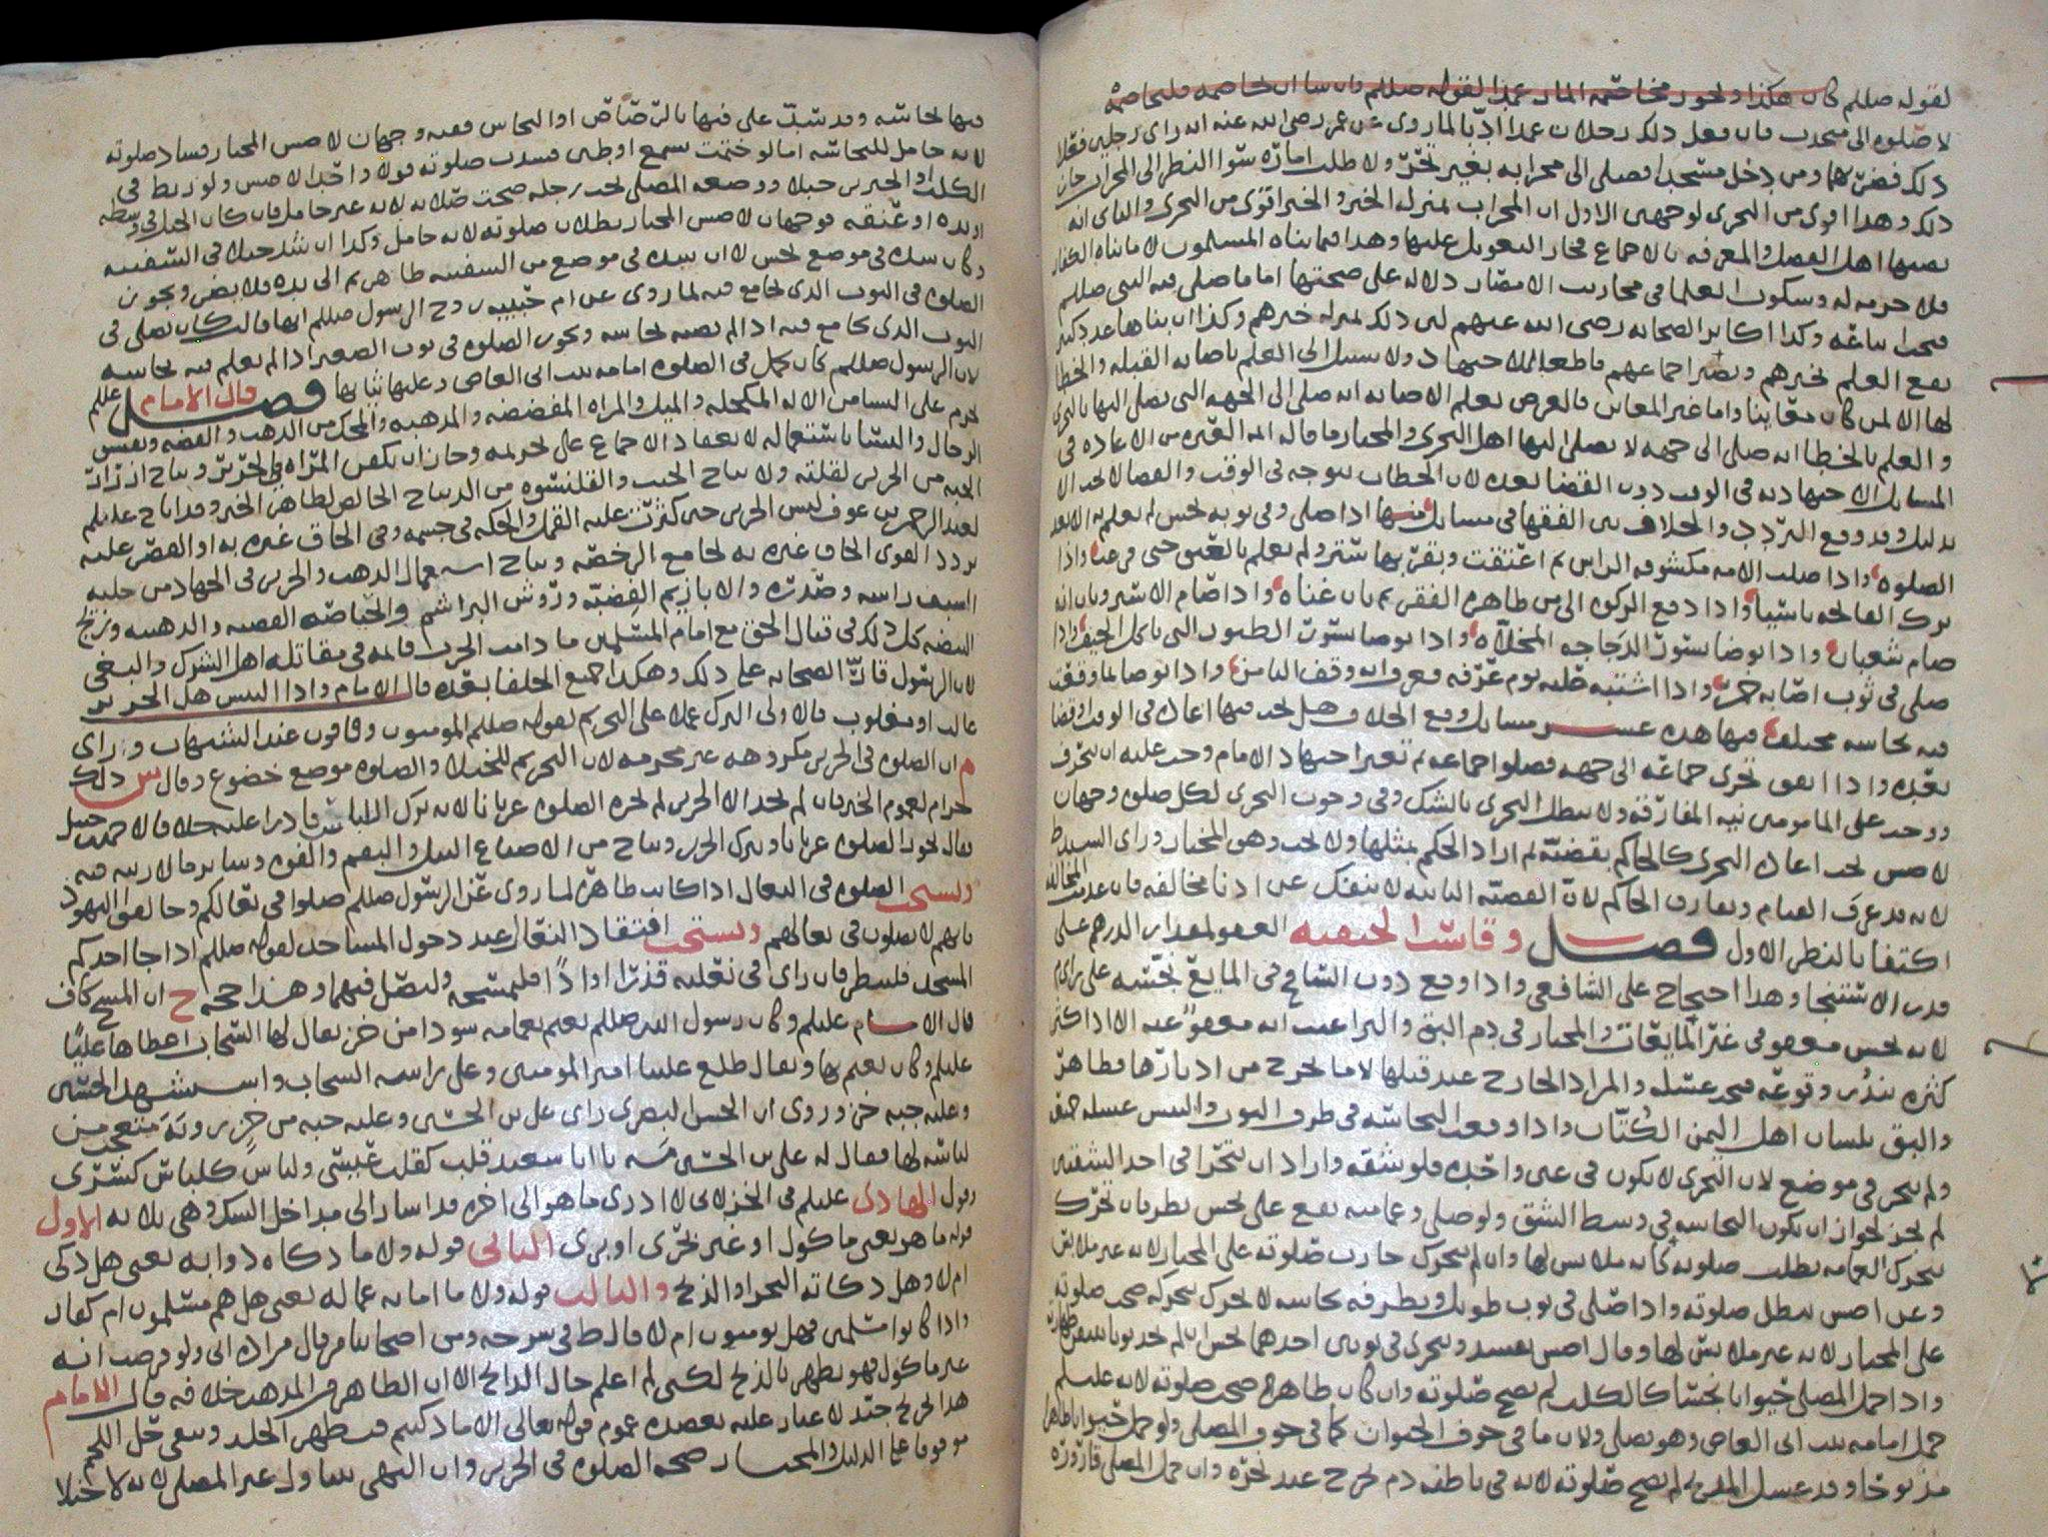 لقوله صللم كان هكذا ولحور مخاصمه المار عمدا لقوله صللم فان سا ان لحاصمه فليحاصمه
لا صلوه الى متحدث فان فعل ذلك رحلان عمدا ادبا لما روى عن عمر رضى الله عنه انه راى رجلين فعلا
ذلك فضربهما ومن دخل مسجدا فصلى الى محرابه بغير تحر ولا طلب اماره سوا النظر الى المحراب جاز
ذلك وهدا اقوى من التحرى لوجهين الاول ان المحراب بمنزله الخبر والخبر اقوى من التحرى والثانى انه
نصبها اهل الفضل والمعرفه بالاجماع فجاز التعويل عليها وهدا فيما بناه المسلمون لا ما بناه الكفار
فلا حرمه له وسكوت العلما فى محاريب الامصار دلاله على صحتها اما ما صلى فيه النبى صللم
فيجب اتباعه وكدا اكابر الصحابه رضى الله عنهم لان ذلك بمنزله خبرهم وكذا ان بناها عدد كثير
يقع العلم بخبرهم ويصير اجماعهم قاطعا للاجتهاد ولا سبيل الى العلم باصابه القبله والخطا
لها الا لمن كان معاينا واما غير المعاين فالغرض بعلم الاصابه انه صلى الى الجهه التى يصلى اليها بالتحرى
والعلم بالخطا انه صلى الى جهه لا يصلى اليها اهل التحرى والمختار ما قاله ائمه العتره من الاعاده فى
المسايل الاجتهاديه فى الوقت دون القضا بعده لان الخطاب يتوجه فى الوقت والقضا لا يجب الا
بدليل وقد وقع التردد والخلاف بين الفقها فى مسايل منها اذا صلى وفى ثوبه نجس لم يعلم به الا بعد
الصلوه واذا صلت الامه مكشوفه الراس ثم اعتقت وبقربها ستر ولم تعلم بالعتق حتى فرغت واذا
ترك الفاتحه ناسيا واذا دفع الزكوه الى من ظاهره الفقر ثم بان غناه واذا صام الاسير وبان انه
صام شعبان واذا توضا بسؤر الدجاجه المخلاه واذا توضا بسؤر الطيور التى تاكل الجيف واذا
صلى فى ثوب اصابه خمر واذا اشتبه عليه يوم عرفه فعرف انه وقف الثامن واذا توضا بما وقعت
فيه نجاسه مختلف فيها هده عشر مسايل وقع الخلاف هل يجب فيها اعاده فى الوقت او قضا
بعده واذا اتفق تحرى جماعه الى جهه فصلوا جماعه ثم تغير اجتهاد الامام وجب عليه ان ينحرف
ووجب على المامومين نيه المفارقه ولا يبطل التحرى بالشك وفى وجوب التحرى لكل صلوه وجهان
لا صس يجب اعاده التحرى كالحاكم يقضيه ثم اراد الحكم بمثلها ولا يجب وهو المختار وراى السيد ط
لانه قد عرف القيام ويفارق الحاكم لان القضيه الثانيه لا تنفك عن ادنا مخالفه فان عدمت المخالفه
اكتفا بالنظر الاول فصل وقاست الحنفيه العفو لمقدار الدرهم على
قدر الاستنجا وهدا احتجاج على الشافعى واذا وقع دون الشايع فى المايع نجسه على راى م
لانه نجس معفو فى غير المايعات والمختار فى دم البق والبراغيث انه معفو عنه الا اذا كثر
كثره يندر وقوعه فيجب غسله والمراد الخارج عند قتلها لا ما يخرج من ادبارها فطاهر
والبق بلسان اهل اليمن الكتان واذا وقعت النجاسه فى طرف الثوب والتبس غسله جميعه
ولم يتحر فى موضع لان التحرى لا يكون فى عين واحده فلو شقه واراد ان يتحرا فى احد الشقين
لم يجز لجواز ان تكون النجاسه فى وسط الشق ولو صلى وعمامته تقع على نجس نظر فان تحرك
بتحرك العمامه بطلت صلوته كانه ملابس لها وان لم يتحرك جازت صلوته على المختار لانه غير ملابس
وعن اصس تبطل صلوته واذا صلى فى ثوب طويل وبطرفه نجاسه لا تتحرك بتحركه صحت صلوته
على المختار لانه غير ملابس لها وقال اصس يفسد ويتحرى فى ثوبين احدهما نجس ان لم يجد ثوبا متيقن طهارته
واذا حمل المصلى حيوانا نجسا كالكلب لم يصح صلوته وان كان طاهرا صحت صلوته لانه عليلم
حمل امامه بنت ابى العاص وهو يصلى ولان ما فى جوف الحيوان كما فى جوف المصلى ولو حمل حيوانا طاهرا
مذبوحا وقد غسل المذبح لم يصح صلوته لانه فى باطنه دم يخرج عند نحره وان حمل المصلى قاروره
فيها نجاسه وقد شبت على فيها بالرصاص او النحاس ففيه وجهان لا صس المختار فساد صلوته
لانه حامل للنجاسه اما لو ختمت بشمع او طين فسدت صلوته قولا واحدا لا صس ولو ربط فى
الكلب او الخنزير حبلا ووضعه المصلى تحت رجله صحت صلاته لانه غير حامل فان كان الحبل فى وسطه
او يده او عنقه فوجهان لا صس المختار بطلان صلوته لانه حامل وكدا ان شد حبلا فى السفينه
وكان شده فى موضع نجس لا ان شده فى موضع من السفينه طاهر ثم الى يده فلا يضر ويجوز
الصلوه فى الثوب الذى يجامع فيه لما روى عن ام حبيبه زوج الرسول صللم انها قالت كان يصلى فى
الثوب الذى يجامع فيه اذا لم يصبه نجاسه وتجوز الصلوه فى ثوب الصغير اذا لم يعلم فيه نجاسه
لان الرسول صللم كان يحمل فى الصلوه امامه بنت ابى العاص وعليها ثيابها فصل قال الامام عللم
يحرم على النسا من الاله المكحله والميل والمراه المفضضه والمذهبه والمحك من الذهب والفضه ونفيس
الرجال والنسا باستعماله لانعقاد الاجماع على تحريمه وجاز ان تكفن المراه فى الحرير ويباح ازرار
الجبه من الحرير لقلته ولا يباح الجيب والقلنسوه من الديباج الخالص لظاهر الخبر وقد اباح عليلم
لعبد الرحمن بن عوف لبس الحرير حين كثرت عليه القمل والحكه فى جسمه وفى الحاق غيره به او القصر عليه
تردد القوى الحاق غيره به لجامع الرخصه ويباح استعمال الذهب والحرير فى الجهاد من حليه
السيف راسه وصدره والابازيم الفضيه وروس البراشم والخياصه الفضيه والذهبيه وتزجج
البيضه كل ذلك فى قتال الحق مع امام المسلمين ما دامت الحرب قايمه فى مقاتله اهل الشرك والبغى
لان الرسول قار الصحابه على ذلك وهكدا جميع الخلفا بعده قال الامام واذا التبس هل الحرير
غالب او مغلوب فالاولى الترك عملا على التحريم لقوله صللم المومنون وقافون عند الشبهات وراى
م ان الصلوه فى الحرير مكروهه غير محرمه لان التحريم للخيلا والصلوه موضع خضوع وقال س ذلك
حرام لعموم الخبر فان لم يجد الا الحرير لم يجزه الصلوه عريانا لانه ترك اللباس قادرا عليه خلافا لاحمد بن حنبل
فقال يجوز الصلوه عريانا ويترك الحرير ويباح من الاصباغ النيل والبقم والفوه وساير ما لا زينه فيه
ويستحب الصلوه فى النعال اذا كانت طاهره لما روى عن الرسول صللم صلوا فى نعالكم وخالفوا اليهود
فانهم لا يصلون فى نعالهم ويستحب افتقاد النعال عند دخول المساجد لقوله صللم اذا جا احدكم
المسجد فلينظر فان راى فى نعليه قذرا او اذا فليمسحه وليصل فيهما وهذا حجه ح ان المسح كاف
قال الامام عليلم وكان رسول الله صللم يعتم بعمامه سودا من خز يقال لها السحاب اعطاها عليا
عليلم وكان يعتم بها ويقال طلع علينا امير المومنين وعلى راسه السحاب واستشهد الحسين
وعليه جبه خز وروى ان الحسن البصرى راى على بن الحسين وعليه جبه من خز
لباسه لها فقال له على بن الحسين مه يا ابا سعيد قلب كقلب عيسى ولباس كلباس كسرى
وقول الهادى عليلم فى الخز لانى لا ادرى ما هو الى اخره قد اشار الى مداخل الشك وهى ثلاثه الاول
قوله ما هو يعنى ماكول او غير بحرى او برى الثانى قوله ولا ما ذكاه دوابه يعنى هل ذكى
ام لا وهل ذكاته النحر او الذبح والثالث قوله ولا ما امانه عماله يعنى هل هم مسلمون ام كفار
واذا كانوا مسلمين فهل يومنون ام لا قال ط فى شرحه ومن اصحابنا من قال مراده انى ولو فرضت انه
غير ماكول فهو يطهر بالذبح لكنى لم اعلم حال الذابح الا ان الظاهر فى المذهب خلافه قال الامام
هذا تخريج جيد لا غبار عليه يعضده عموم قوله تعالى الا ما ذكيتم فيطهر الجلد ويبقى حل اللحم
موقوفا على الدليل والمختار صحه الصلوه فى الحرير وان النهى يتناول غير المصلى لانه لا خيلا